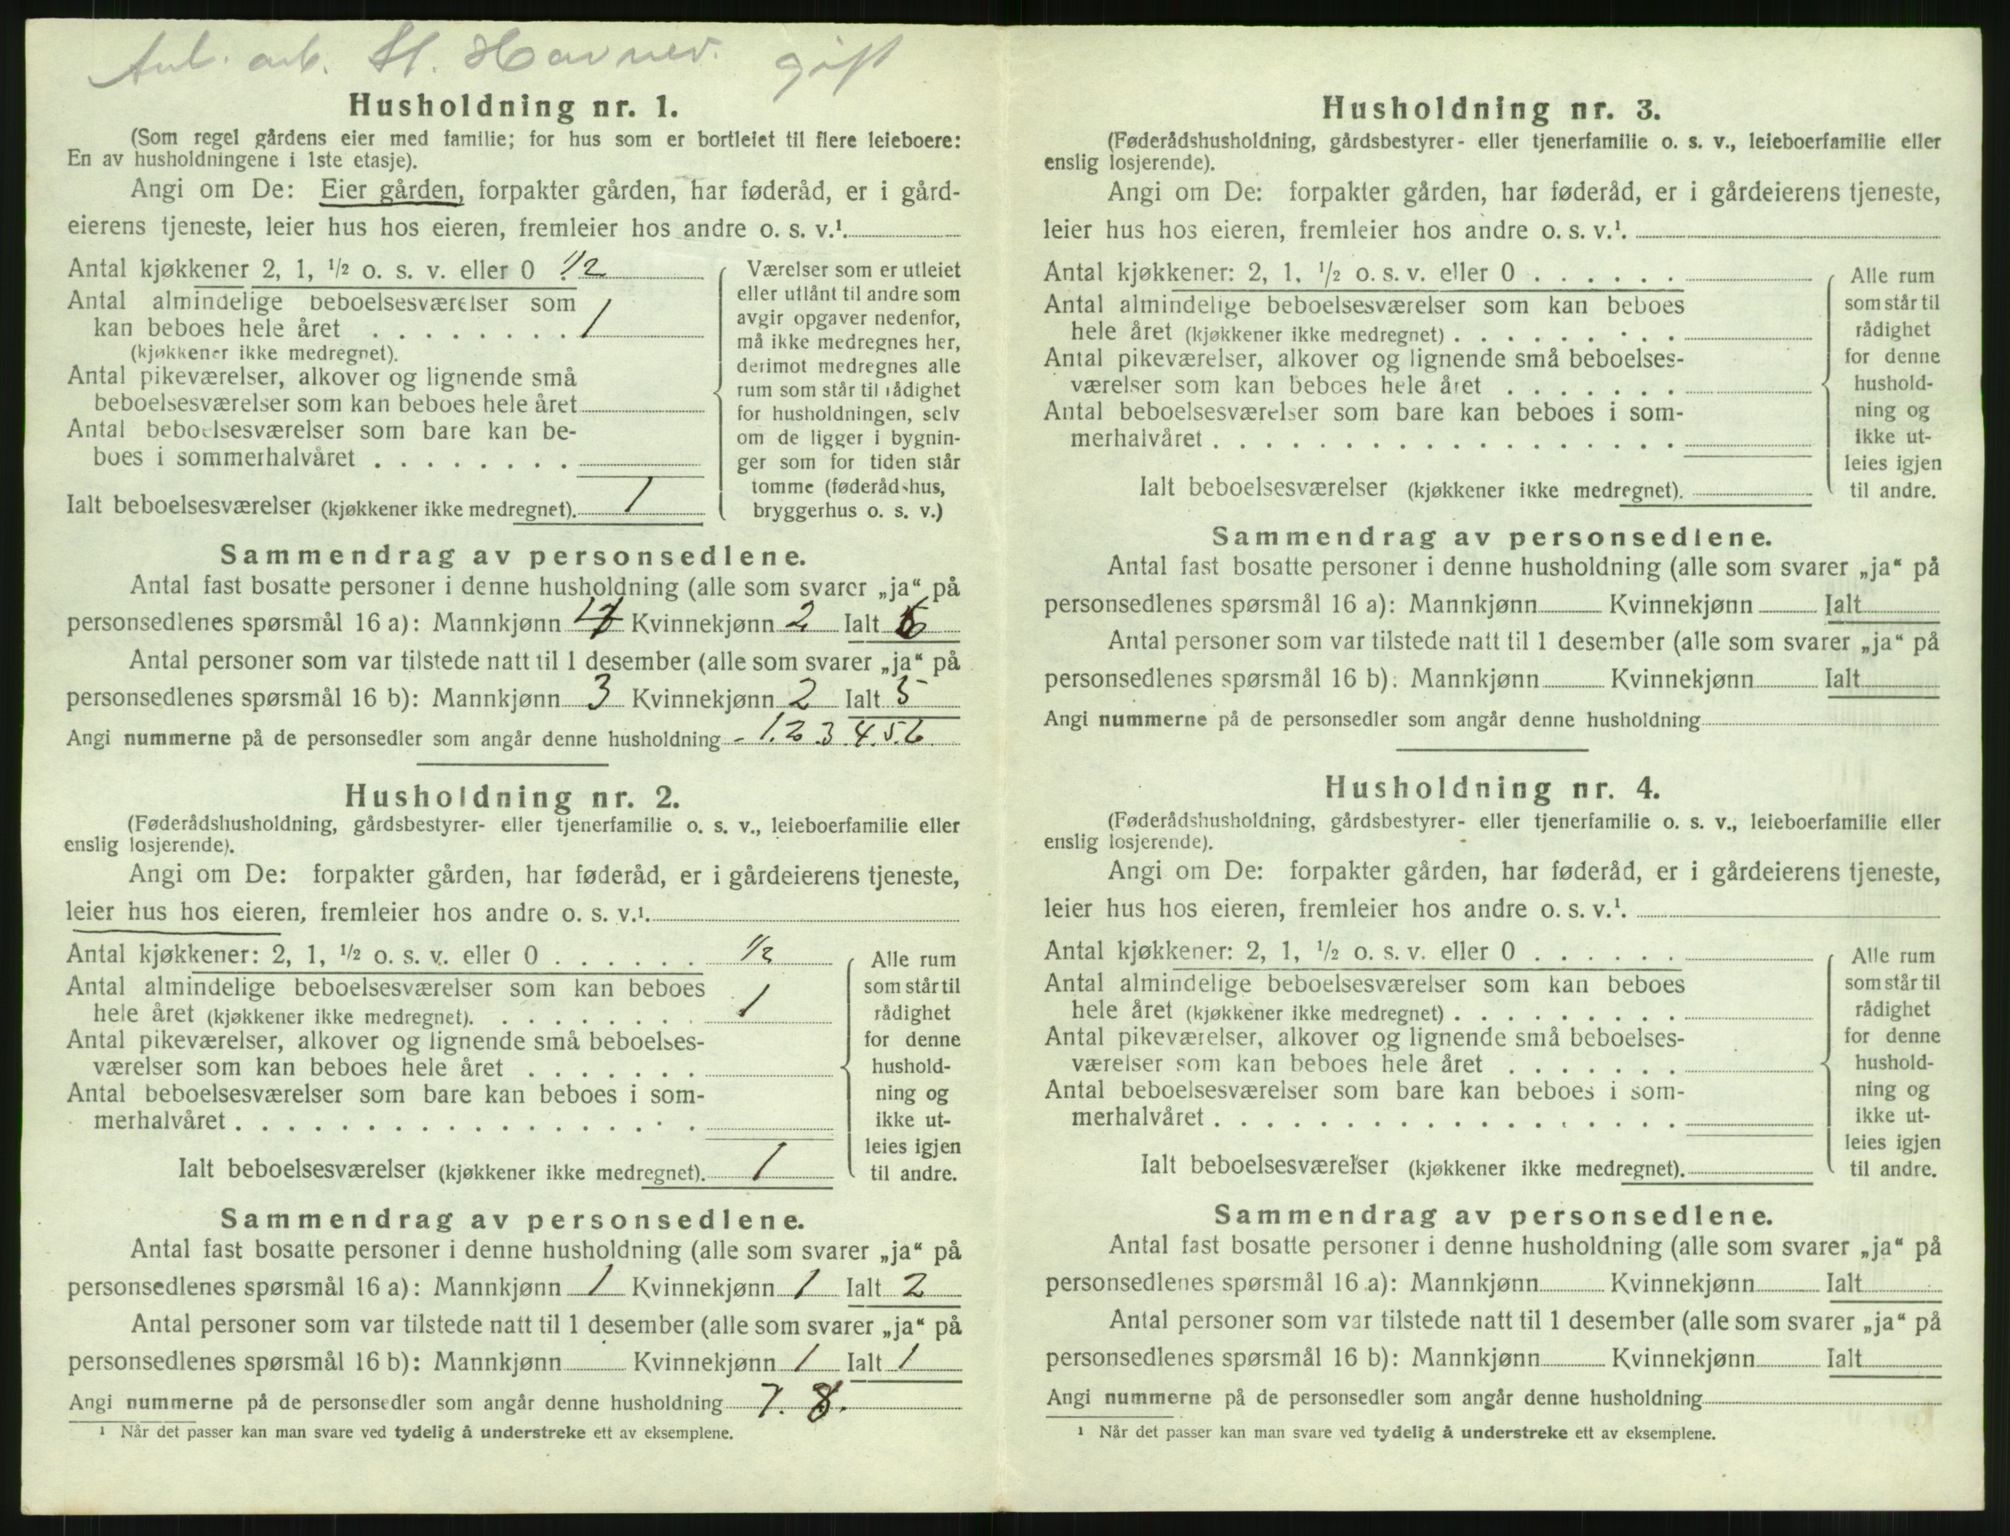 Anl. arb. St. Havnev. gift
Husholdning nr. 1.
(Som regel gårdens eier med familie; for hus som er bortleiet til flere leieboere:
En av husholdningene i 1ste etasje).
Angi om De: Eier gården, forpakter gården, har føderåd, er i gård-
eierens tjeneste, leier hus hos eieren, fremleier hos andre o. s. v.¹
Antal kjøkkener 2, 1, ½ o. s. v. eller 0 ½
Antal almindelige beboelsesværelser som
kan beboes hele året . . . . . . . . 1
(kjøkkener ikke medregnet).
Antal pikeværelser, alkover og lignende små
beboelsesværelser som kan beboes hele året
Antal beboelsesværelser som bare kan be-
boes i sommerhalvåret . . . . . . . .
Ialt beboelsesværelser (kjøkkener ikke medregnet). 1
Værelser som er utleiet
eller utlånt til andre som
avgir opgaver nedenfor,
må ikke medregnes her,
derimot medregnes alle
rum som står til rådighet
for husholdningen, selv
om de ligger i bygnin-
ger som for tiden står
tomme (føderådshus,
bryggerhus o. s. v.)
Sammendrag av personsedlene.
Antal fast bosatte personer i denne husholdning (alle som svarer „ja“ på
personsedlenes spørsmål 16 a): Mannkjønn 4 Kvinnekjønn 2 Ialt 6
Antal personer som var tilstede natt til 1 desember (alle som svarer „ja“ på
personsedlenes spørsmål 16 b): Mannkjønn 3 Kvinnekjønn 2 Ialt 5
Angi nummerne på de personsedler som angår denne husholdning - 1. 2 3. 4. 5. 6.
Husholdning nr. 2.
(Føderådshusholdning, gårdsbestyrer- eller tjenerfamilie o. s. v., leieboerfamilie eller
enslig losjerende).
Angi om De: forpakter gården, har føderåd, er i gårdeierens tjeneste,
leier hus hos eieren, fremleier hos andre o. s. v.¹
Antal kjøkkener: 2, 1, ½ o. s. v. eller 0 . . . . . . ½
Antal almindelige beboelsesværelser som kan beboes
hele året (kjøkkener ikke medregnet). . . . . . . . . 1
Antal pikeværelser, alkover og lignende små beboelses-
værelser som kan beboes hele året . . . . . . .
Antal beboelsesværelser som bare kan beboes i som-
merhalvåret . . . . . . . . . . . . . . . . . .
Ialt beboelsesværelser (kjøkkener ikke medregnet). 1
Alle rum
som står til
rådighet
for denne
hushold-
ning og
ikke ut-
leies igjen
til andre.
Sammendrag av personsedlene.
Antal fast bosatte personer i denne husholdning (alle som svarer „ja“ på
personsedlenes spørsmål 16 a): Mannkjønn 1 Kvinnekjønn 1 Ialt 2
Antal personer som var tilstede natt til 1 desember (alle som svarer „ja“ på
personsedlenes spørsmål 16 b): Mannkjønn Kvinnekjønn 1 Ialt 1
Angi nummerne på de personsedler som angår denne husholdning 7. 8.
¹ Når det passer kan man svare ved tydelig å understreke ett av eksemplene.
Husholdning nr. 3.
(Føderådshusholdning, gårdsbestyrer- eller tjenerfamilie o. s. v., leieboerfamilie eller
enslig losjerende).
Angi om De: forpakter gården, har føderåd, er i gårdeierens tjeneste,
leier hus hos eieren, fremleier hos andre o. s. v.¹
Antal kjøkkener: 2, 1, ½ o. s. v. eller 0 . . . . . .
Antal almindelige beboelsesværelser som kan beboes
hele året (kjøkkener ikke medregnet) . . . . . . . . .
Antal pikeværelser, alkover og lignende små beboelses-
værelser som kan beboes hele året . . . . . . .
Antal beboelsesværelser som bare kan beboes i som-
merhalvåret . . . . . . . . . . . . . . . . . .
Ialt beboelsesværelser (kjøkkener ikke medregnet).
Alle rum
som står til
rådighet
for denne
hushold-
ning og
ikke ut-
leies igjen
til andre.
Sammendrag av personsedlene.
Antal fast bosatte personer i denne husholdning (alle som svarer „ja“ på
personsedlenes spørsmål 16 a): Mannkjønn Kvinnekjønn Ialt
Antal personer som var tilstede natt til 1 desember (alle som svarer „ja“ på
personsedlenes spørsmål 16 b): Mannkjønn Kvinnekjønn Ialt
Angi nummerne på de personsedler som angår denne husholdning
Husholdning nr. 4.
(Føderådshusholdning, gårdsbestyrer- eller tjenerfamilie o. s. v., leieboerfamilie eller
enslig losjerende).
Angi om De: forpakter gården, har føderåd, er i gårdeierens tjeneste,
leier hus hos eieren, fremleier hos andre o. s. v.¹
Antal kjøkkener: 2, 1, ½ o. s. v. eller 0 . . . . . .
Antal almindelige beboelsesværelser som kan beboes
hele året (kjøkkener ikke medregnet) . . . . . . . . .
Antal pikeværelser, alkover og lignende små beboelses-
værelser som kan beboes hele året . . . . . . .
Antal beboelsesværelser som bare kan beboes i som-
merhalvåret . . . . . . . . . . . . . . . . . .
Ialt beboelsesværelser (kjøkkener ikke medregnet).
Alle rum
som står til
rådighet
for denne
hushold-
ning og
ikke ut-
leies igjen
til andre.
Sammendrag av personsedlene.
Antal fast bosatte personer i denne husholdning (alle som svarer „ja“ på
personsedlenes spørsmål 16 a): Mannkjønn Kvinnekjønn Ialt
Antal personer som var tilstede natt til 1 desember (alle som svarer „ja“ på
personsedlenes spørsmål 16 b): Mannkjønn Kvinnekjønn Ialt
Angi nummerne på de personsedler som angår denne husholdning
¹ Når det passer kan man svare ved tydelig å understreke ett av eksemplene.